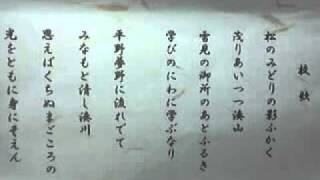 校歌
松のみどりの影ふかく
茂りあいつつ湊山
雪見の御所のあとふるき
学びのにわに学ぶなり
平野夢野に流れでて
みなもと清し湊川
思えばくちぬまごころの
光をともに身にそえん